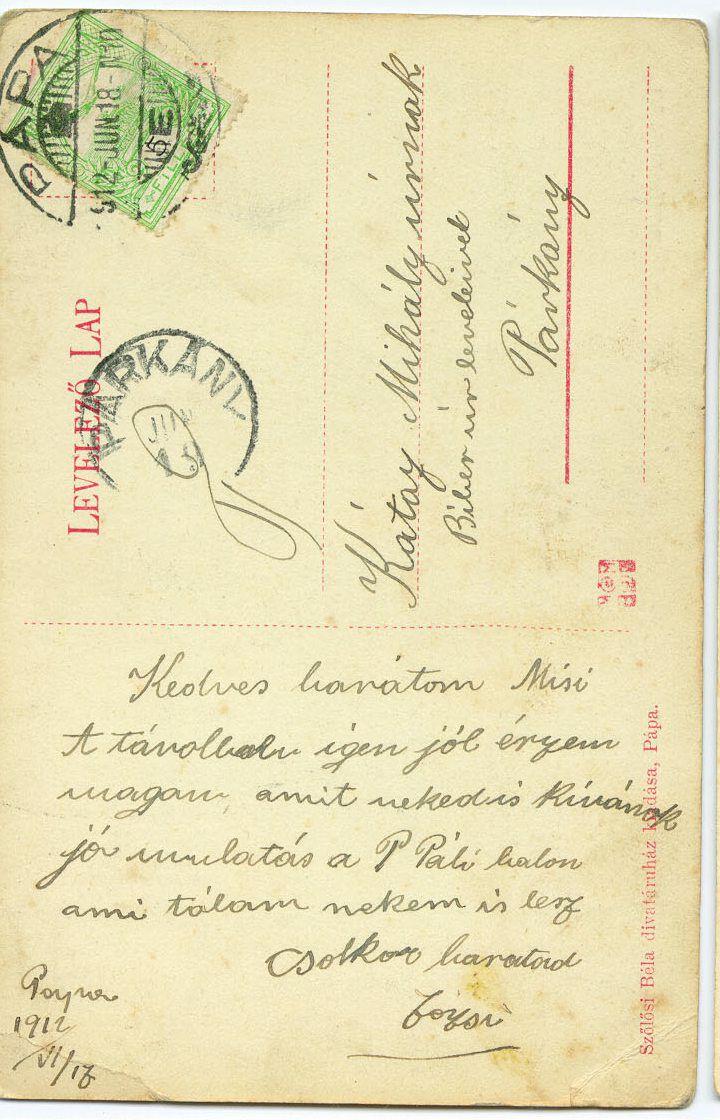 PÁPA
912 JUN 18
FILLÉR
LEVELEZŐ LAP
PÁRKÁNY
JUN
Kátay Mihály úrnak
Biber úr leveleivel
Párkány
Kedves barátom Misi
A távolban igen jól érzem
magam amit neked is kívánok
jó mulatás a P Páli balon
ami tálam nekem is lesz
csolkor baratod
Pápa
1912
VI/17
Szőlősi Béla divatáruház kiadása, Pápa.